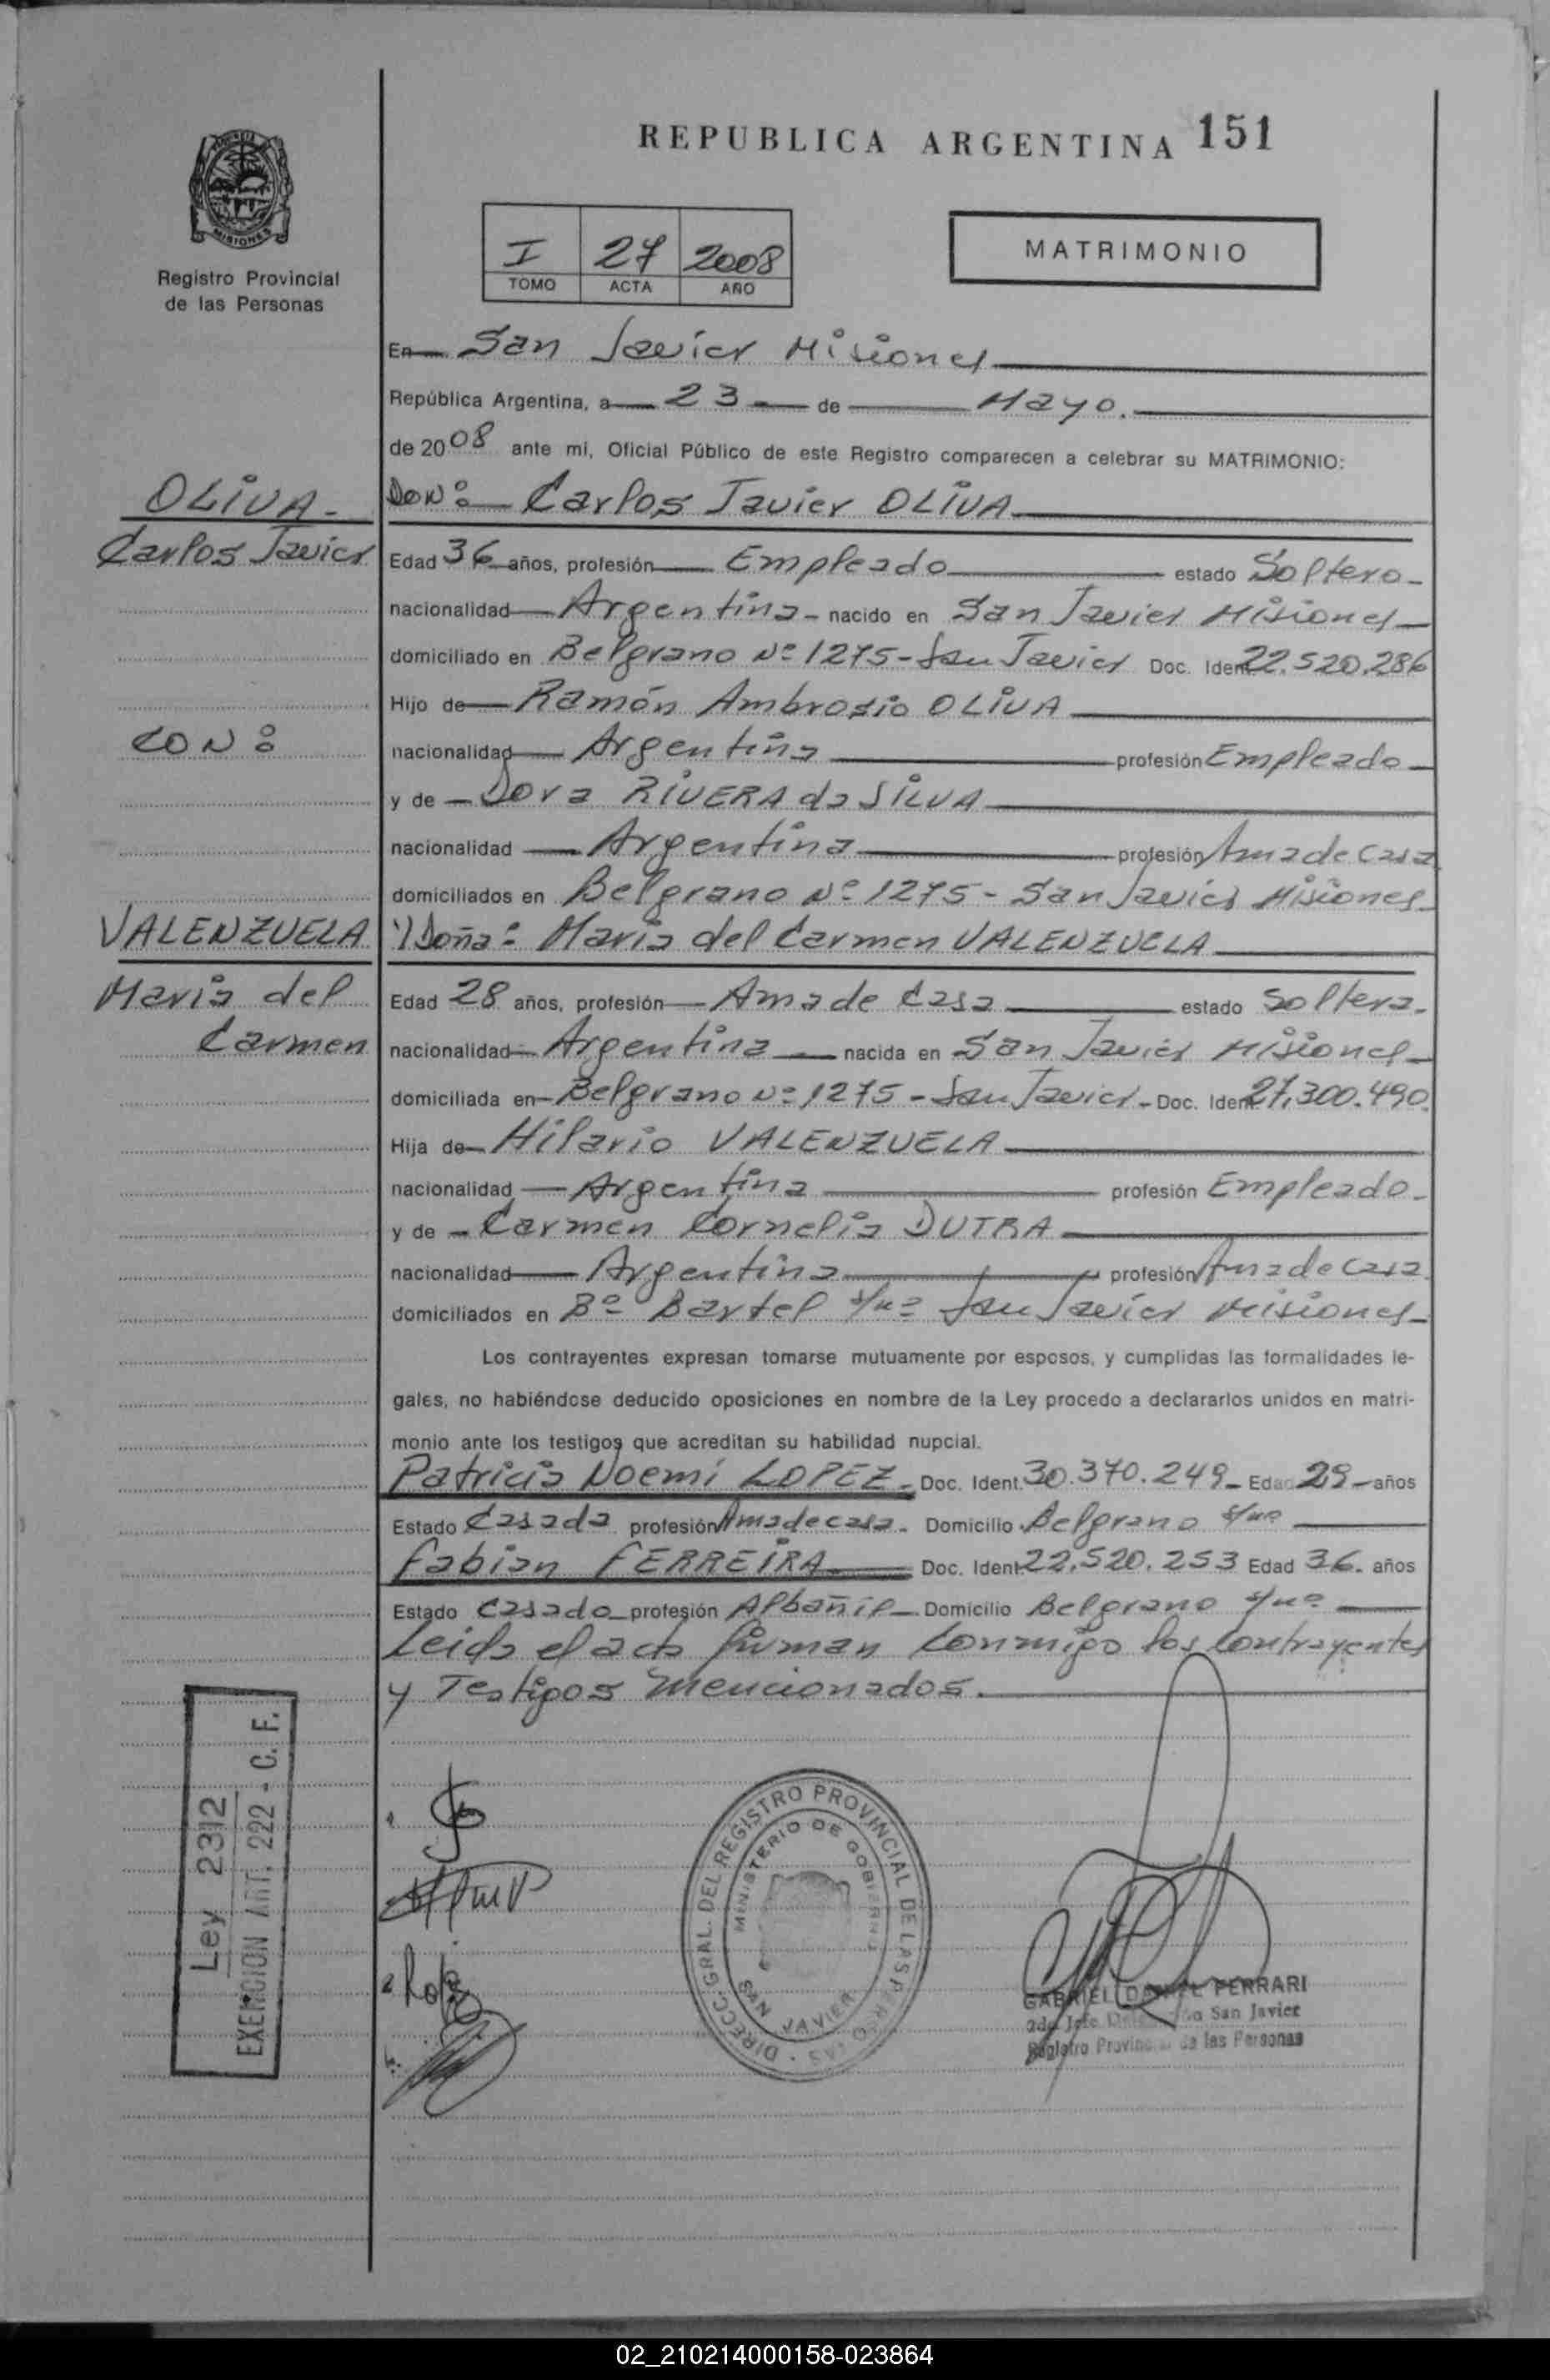 REPUBLICA ARGENTINA 151
MISIONES
Registro Provincial
de las Personas
I 27 2008
TOMO ACTA AÑO
MATRIMONIO
En San Javier Misiones
República Argentina, a 23 de Mayo.
de 2008 ante mi, Oficial Público de este Registro comparecen a celebrar su MATRIMONIO:
OLIVA.
Carlos Javier
CON:
VALENZUELA
Maria del
Carmen
DON: Carlos Javier OLIVA
Edad 36 años, profesión Empleado estado Soltero
nacionalidad Argentina nacido en San Javier Misiones
domiciliado en Belgrano Nº 1275 - San Javier Doc. Ident. 22.520.286
Hijo de Ramón Ambrosio OLIVA
nacionalidad Argentina profesión Empleado
y de Dora RIVERA da SILVA
nacionalidad Argentina profesión Ama de casa
domiciliados en Belgrano Nº 1275 - San Javier Misiones
y Doña: Maria del Carmen VALENZUELA
Edad 28 años, profesión Ama de Casa estado Soltera.
nacionalidad Argentina nacida en San Javier Misiones
domiciliada en Belgrano Nº 1275 - San Javier - Doc. Ident. 27.300.490.
Hija de Hilario VALENZUELA
nacionalidad Argentina profesión Empleado
y de Carmen Cornelia DUTRA
nacionalidad Argentina profesión Ama de casa
domiciliados en Bº Bartel s/nº San Javier Misiones
Los contrayentes expresan tomarse mutuamente por esposos, y cumplidas las formalidades le-
gales, no habiéndose deducido oposiciones en nombre de la Ley procedo a declararlos unidos en matri-
monio ante los testigos que acreditan su habilidad nupcial.
Patricia Noemí LOPEZ Doc. Ident. 30.370.249 Edad 29 años
Estado Casada profesión Ama de casa. Domicilio Belgrano s/nº
Fabian FERREIRA Doc. Ident. 22.520.253 Edad 36. años
Estado Casado profesión Albañil Domicilio Belgrano s/nº
Leida el acta firman conmigo los contrayentes
y Testigos mencionados.
Ley 2312
EXENCION ART. 222 - C. F.
DIRECC. GRAL. DEL REGISTRO PROVINCIAL DE LAS PERSONAS
MINISTERIO DE GOBIERNO
SAN JAVIER
GABRIEL DANIEL FERRARI
2do Jefe San Javier
Registro Provincial de las Personas
02_210214000158-023864